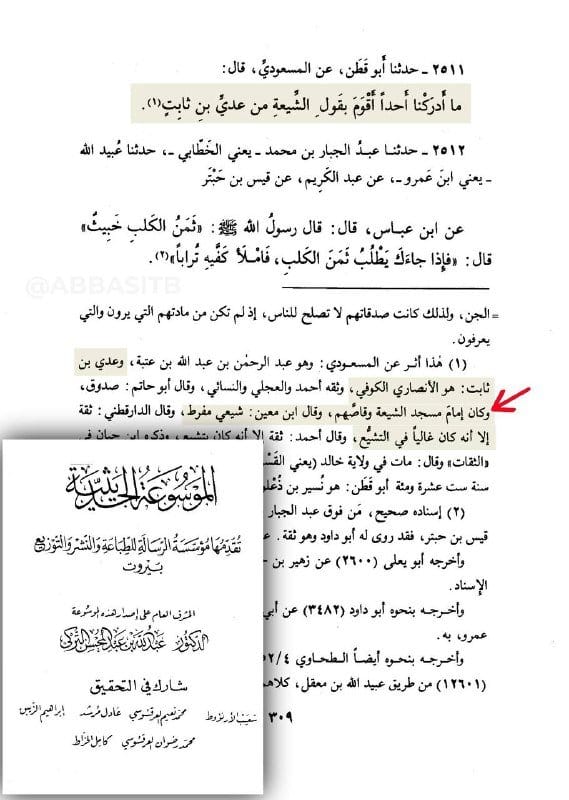 ٢٥١١ ـ حدثنا أَبو قَطَن، عن المسعوديِّ، قال:
ما أَدرَكْنا أَحداً أَقْوَمَ بقَولِ الشِّيعة من عديِّ بنِ ثابتٍ(١).
٢٥١٢ ـ حدثنا عبدُ الجبار بن محمد ـ يعني الخَطّابي ـ، حدثنا عُبيد الله
ـ يعني ابنَ عَمرو ـ، عن عبد الكَريم، عن قيس بن حَبْتَر
عن ابن عباس، قال: قال رسولُ الله ﷺ: «ثَمَنُ الكَلبِ خَبِيثٌ»
قال: «فإذا جاءَكَ يَطْلُبُ ثَمَنَ الكَلبِ، فَامْلَأْ كَفَّيهِ تُراباً»(٢).
@ABBASITB
= الجن، ولذلك كانت صدقاتهم لا تصلح للناس، إذ لم تكن من مادتهم التي يرون والتي
يعرفون.
(١) هٰذا أثر عن المسعودي: وهو عبد الرحمٰن بن عبد الله بن عتبة، وعدي بن
ثابت: هو الأنصاري الكوفي، وثقه أحمد والعجلي والنسائي، وقال أبو حاتم: صدوق،
وكان إمامَ مسجد الشيعة وقاصَّهم، وقال ابن معين: شيعي مفرط، وقال الدارقطني: ثقة
إلا أنه كان غالياً في التشيُّع، وقال أحمد: ثقة إلا أنه كان يتشيع، وذكره ابن حبان في
«الثقات» وقال: مات في ولاية خالد (يعني القَسْ
سنة ست عشرة ومئة أبو قَطَن: هو
(٢) إسناده صحيح، مَن فوق عبد الجبار
قيس بن حبتر، فقد روى له أبو داود وهو ثقة.
وأخرجه أبو يعلى (٢٦٠٠) عن زهير بن
الإسناد.
وأخرجه بنحوه أبو داود (٣٤٨٢) عن أبي
عمرو، به.
وأخرجه بنحوه أيضاً الطحاوي ٥٢/٤
(١٢٦٠١) من طريق عبيد الله بن معقل، كلاهم
٣٠٩
الموسوعة الحديثية
تقدمها مؤسسة الرسالة للطباعة والنشر والتوزيع
بيروت
المشرف العام على إصدار هذه الموسوعة
الدكتور عبد الله بن عبد المحسن التركي
شارك في التحقيق
شعيب الأرنؤوط محمد نعيم العرقسوسي عادل مرشد إبراهيم الزيبق
محمد رضوان العرقسوسي كامل الخراط